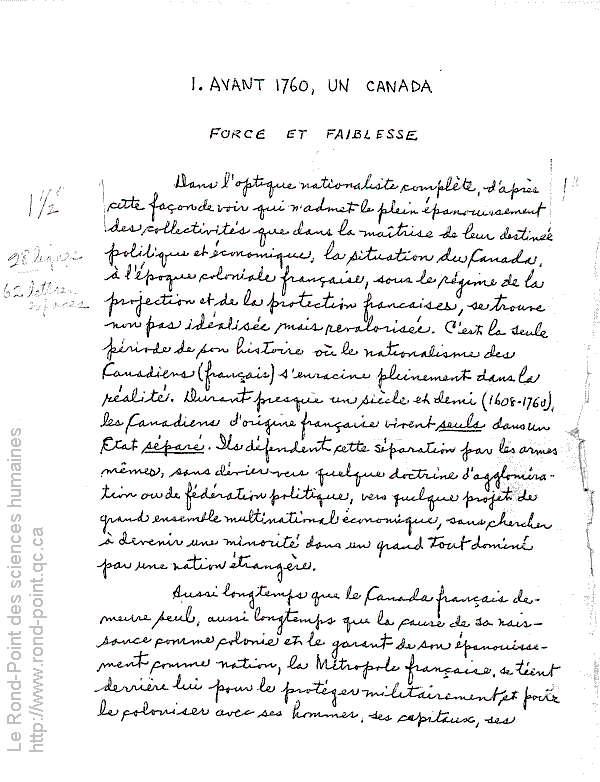 I. AVANT 1760, UN CANADA
FORCE ET FAIBLESSE
Dans l'optique nationaliste complète, d'après
cette façon de voir qui n'admet le plein épanouissement
des collectivités que dans la maîtrise de leur destinée
politique et économique, la situation du Canada,
à l'époque coloniale française, sous le régime de la
projection et de la protection françaises, se trouve
non pas idéalisée mais revalorisée. C'est la seule
période de son histoire où le nationalisme des
Canadiens (français) s'enracine pleinement dans la
réalité. Durant presque un siècle et demi (1608-1760),
les Canadiens d'origine française vivent seuls dans un
Etat séparé. Ils défendent cette séparation par les armes
mêmes, sans dévier vers quelque doctrine d'aggloméra-
tion ou de fédération politique, vers quelque projet de
grand ensemble multinational économique, sans chercher
à devenir une minorité dans un grand Tout dominé
par une nation étrangère.
Aussi longtemps que le Canada français de-
meure seul, aussi longtemps que la cause de sa nais-
sance comme colonie et le garant de son épanouisse-
ment comme nation, la Métropole française, se tient
derrière lui pour le protéger militairement et pour
le coloniser avec ses hommes, ses capitaux, ses
1 1/2"
28 lignes
62 lettres
espaces
1"
Le Rond-Point des sciences humaines
http://www.rond-point.qc.ca